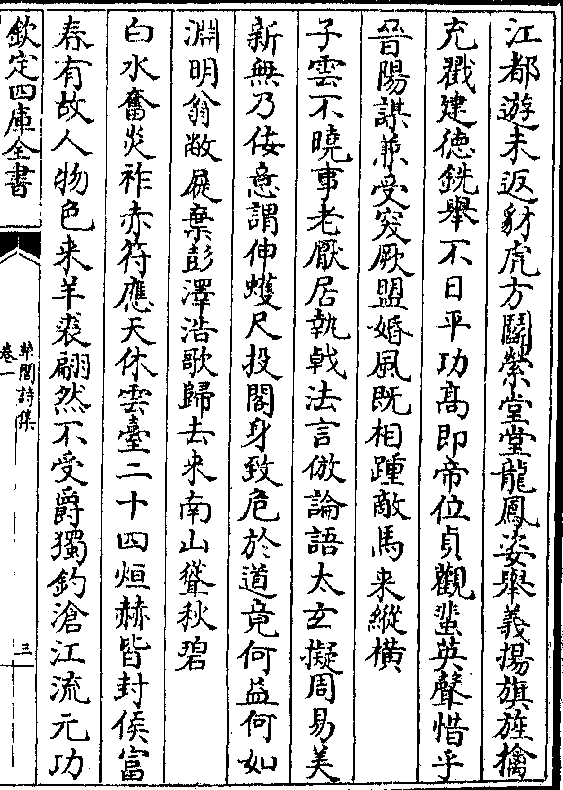 江都遊未返豺虎方鬭縈堂堂龍鳳姿舉義揚旗旌擒
充戳建徳銑舉不日平功髙即帝位貞觀蜚英聲惜乎
晉陽謀兼受突厥盟婚風既相踵敵馬来縱橫
子雲不曉事老厭居執戟法言倣論語太玄擬周易美
新無乃佞意謂伸蠖尺投閣身致危於道竟何益何如
淵明翁敝屣棄彭澤浩歌歸去来南山聳秋碧
白水奮炎祚赤符應天休雲臺二十四烜赫皆封侯富
春有故人物色来羊裘翩然不受爵獨釣滄江流元功
欽定四庫全書
詩集
卷一
三